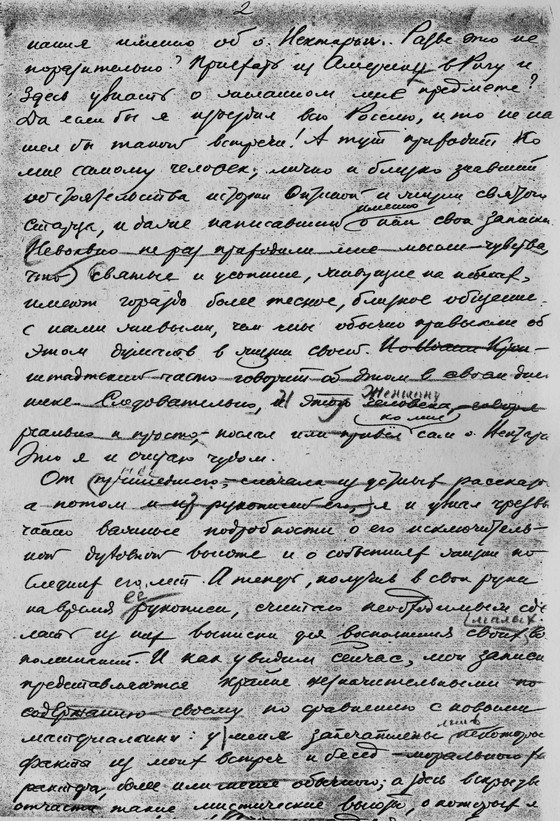 2
нашел именно об о. Нектарии. Разве это не
поразительно? Приехать из Америки в Ригу и
здесь узнать о желанном мне предмете?
Да если бы я проездил всю Россию, и то не на
шел бы такой встречи! А тут приводит ко
мне самому человек, лично и близко знавший
обстоятельства истории Оптиной и жизни святого
старца, и даже написавший именно о нем свои записки.
Невольно не раз приходили мне мысли-чувства,
что святые и усопшие, живущие на небесах,
имеют гораздо более тесное, близкое общение
с нами живыми, чем мы обычно привыкли об
этом думать в жизни своей. Иоанн Крон-
штадтский часто говорит об этом в своем днев
нике. Следовательно, и эту женщину человека,
реально и просто послал или привёл ко мне сам о. Нектарий
Это я и считаю чудом.
От нее сначала из устных рассказов
а потом и из рукописей я и узнал чрезвы
чайно важные подробности о его исключитель-
ной духовной высоте и о событиях жизни по
следних его лет. А теперь, получив в свои руки
на время ее рукописи, считаю необходимым сде
лать из них выписки для восполнения своих малых вос
поминаний. И как увидим сейчас, мои записи
представляются крайне незначительными по
содержанию своему по сравнению с новыми
материалами: у меня запечатлены лишь некоторые
факты из моих встреч и бесед морального ха
рактера, более или менее обычного; а здесь вскрыты
отчасти такие мистические высоты, о которых я